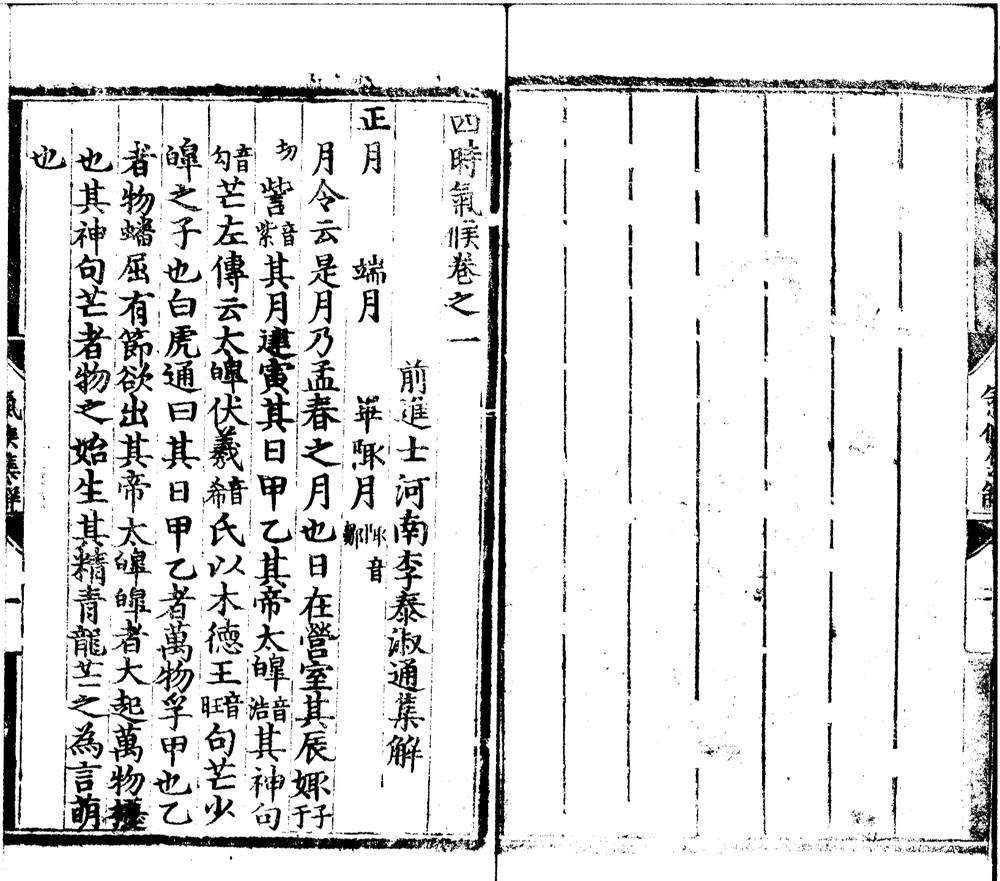 四時氣候卷之一
前進士河南李泰淑通集解
正月 端月 孟陬月陬音鄹
月令云是月乃孟春之月也日在營室其辰娵子于
切訾音紫其月建寅其日甲乙其帝太皥音浩其神句
音勾芒左傳云太皥伏羲音希氏以木德王音旺句芒少
皥之子也白虎通曰其日甲乙者萬物孚甲也乙
者物蟠屈有節欲出其帝太皥皥者大起萬物擾
也其神句芒者物之始生其精青龍芒之為言萌
也
氣候集解
一